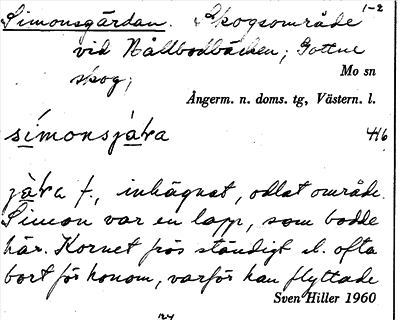 1-2
Simonsgärdan. Skogsområde
vid Nållbodbäcken; Gottne
skog;
Mo sn
Ångerm. n. doms. tg, Västern. l.
simonsjäka 446
jäka f., inhägnat, odlat område.
Simon var en lapp, som bodde
här. Kornet frös ständigt el. ofta
bort för honom, varför han flyttade
Sven Hiller 1960